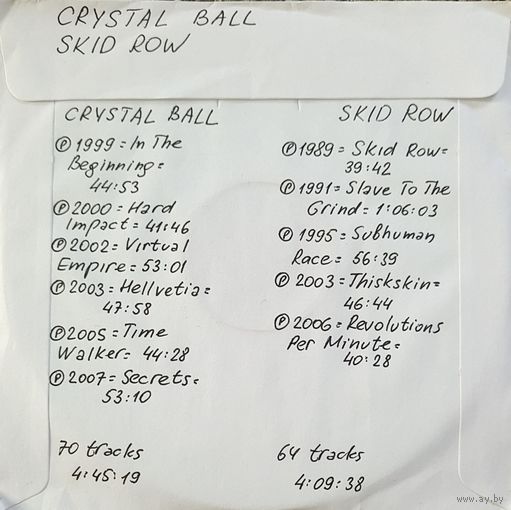 CRYSTAL BALL
SKID ROW
CRYSTAL BALL
℗ 1999 = In The
Beginning =
44:53
℗ 2000 = Hard
Impact = 41:46
℗ 2002 = Virtual
Empire = 53:01
℗ 2003 = Hellvetia =
47:58
℗ 2005 = Time
Walker = 44:28
℗ 2007 = Secrets =
53:10
70 tracks
4:45:19
SKID ROW
℗ 1989 = Skid Row =
39:42
℗ 1991 = Slave To The
Grind = 1:06:03
℗ 1995 = Subhuman
Race = 56:39
℗ 2003 = Thiskskin =
46:44
℗ 2006 = Revolutions
Per Minute =
40:28
64 tracks
4:09:38
www.ay.by